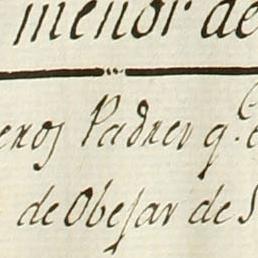 menor de
eros Padres q.e
de Obejar de S